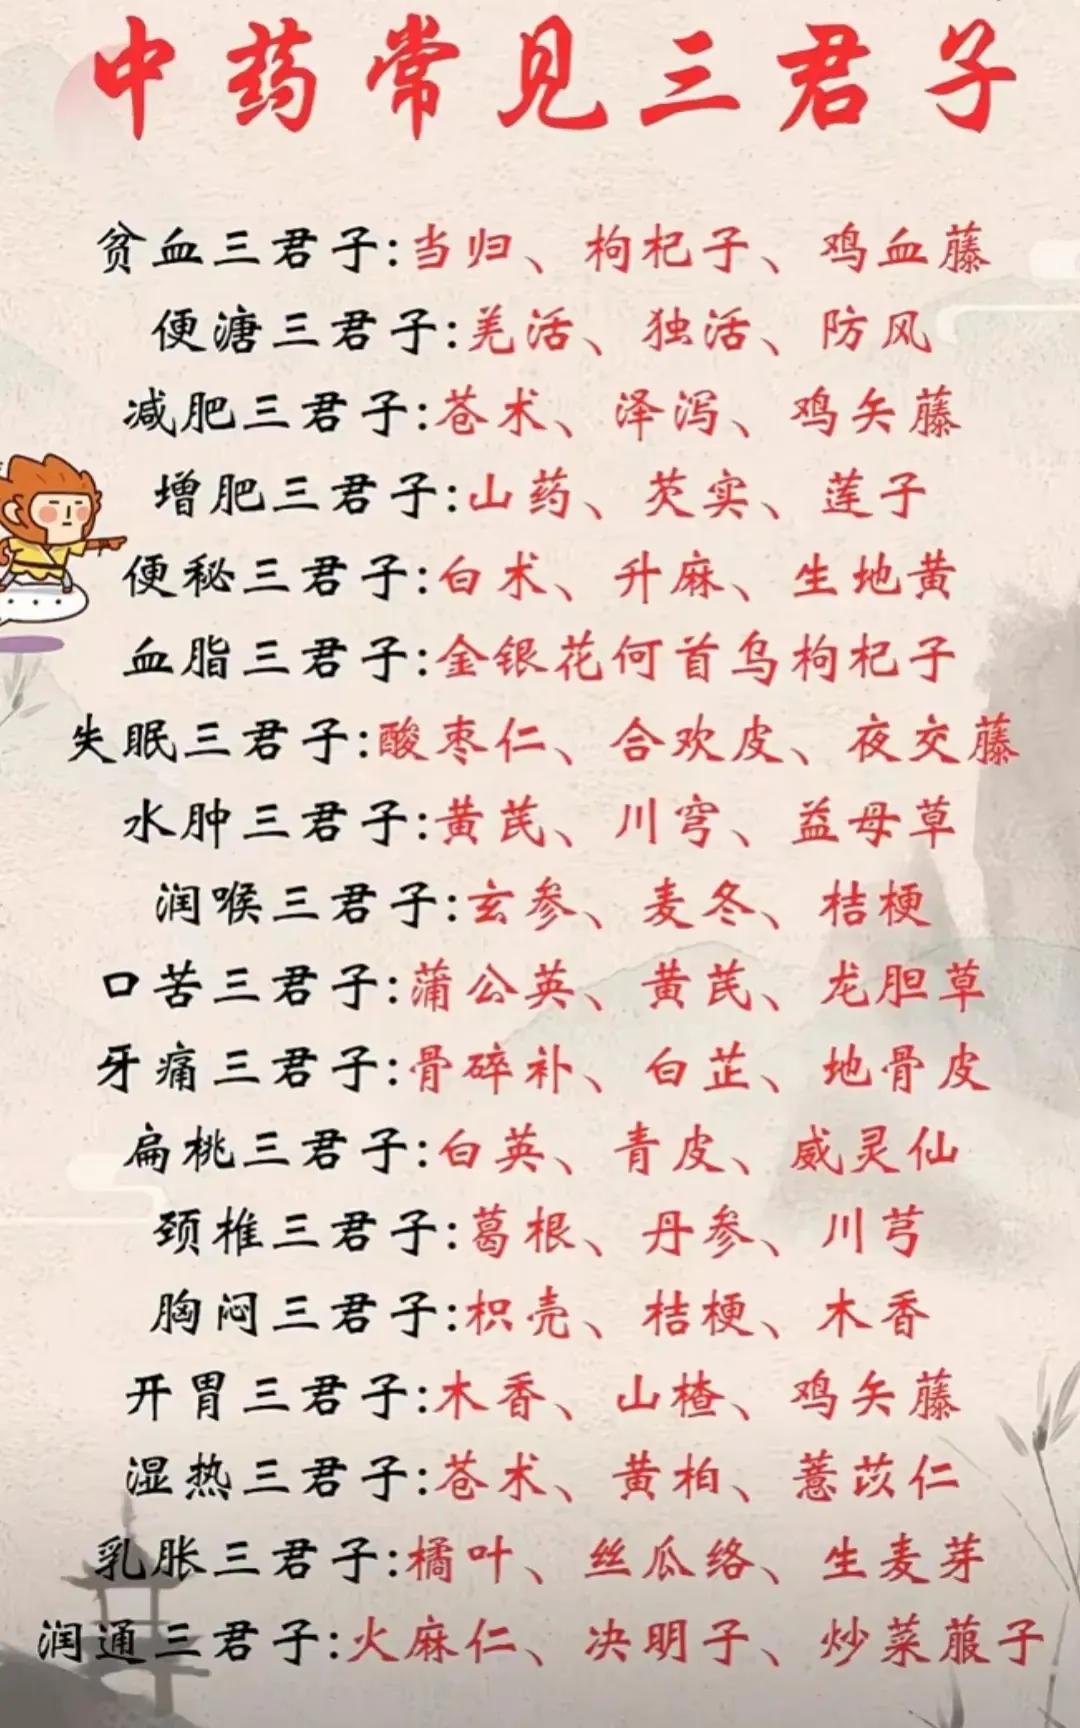 中药常见三君子
贫血三君子:当归、枸杞子、鸡血藤
便溏三君子:羌活、独活、防风
减肥三君子:苍术、泽泻、鸡矢藤
增肥三君子:山药、芡实、莲子
便秘三君子:白术、升麻、生地黄
血脂三君子:金银花何首乌枸杞子
失眠三君子:酸枣仁、合欢皮、夜交藤
水肿三君子:黄芪、川穹、益母草
润喉三君子:玄参、麦冬、桔梗
口苦三君子:蒲公英、黄芪、龙胆草
牙痛三君子:骨碎补、白芷、地骨皮
扁桃三君子:白英、青皮、威灵仙
颈椎三君子:葛根、丹参、川芎
胸闷三君子:枳壳、桔梗、木香
开胃三君子:木香、山楂、鸡矢藤
湿热三君子:苍术、黄柏、薏苡仁
乳胀三君子:橘叶、丝瓜络、生麦芽
润通三君子:火麻仁、决明子、炒菜菔子